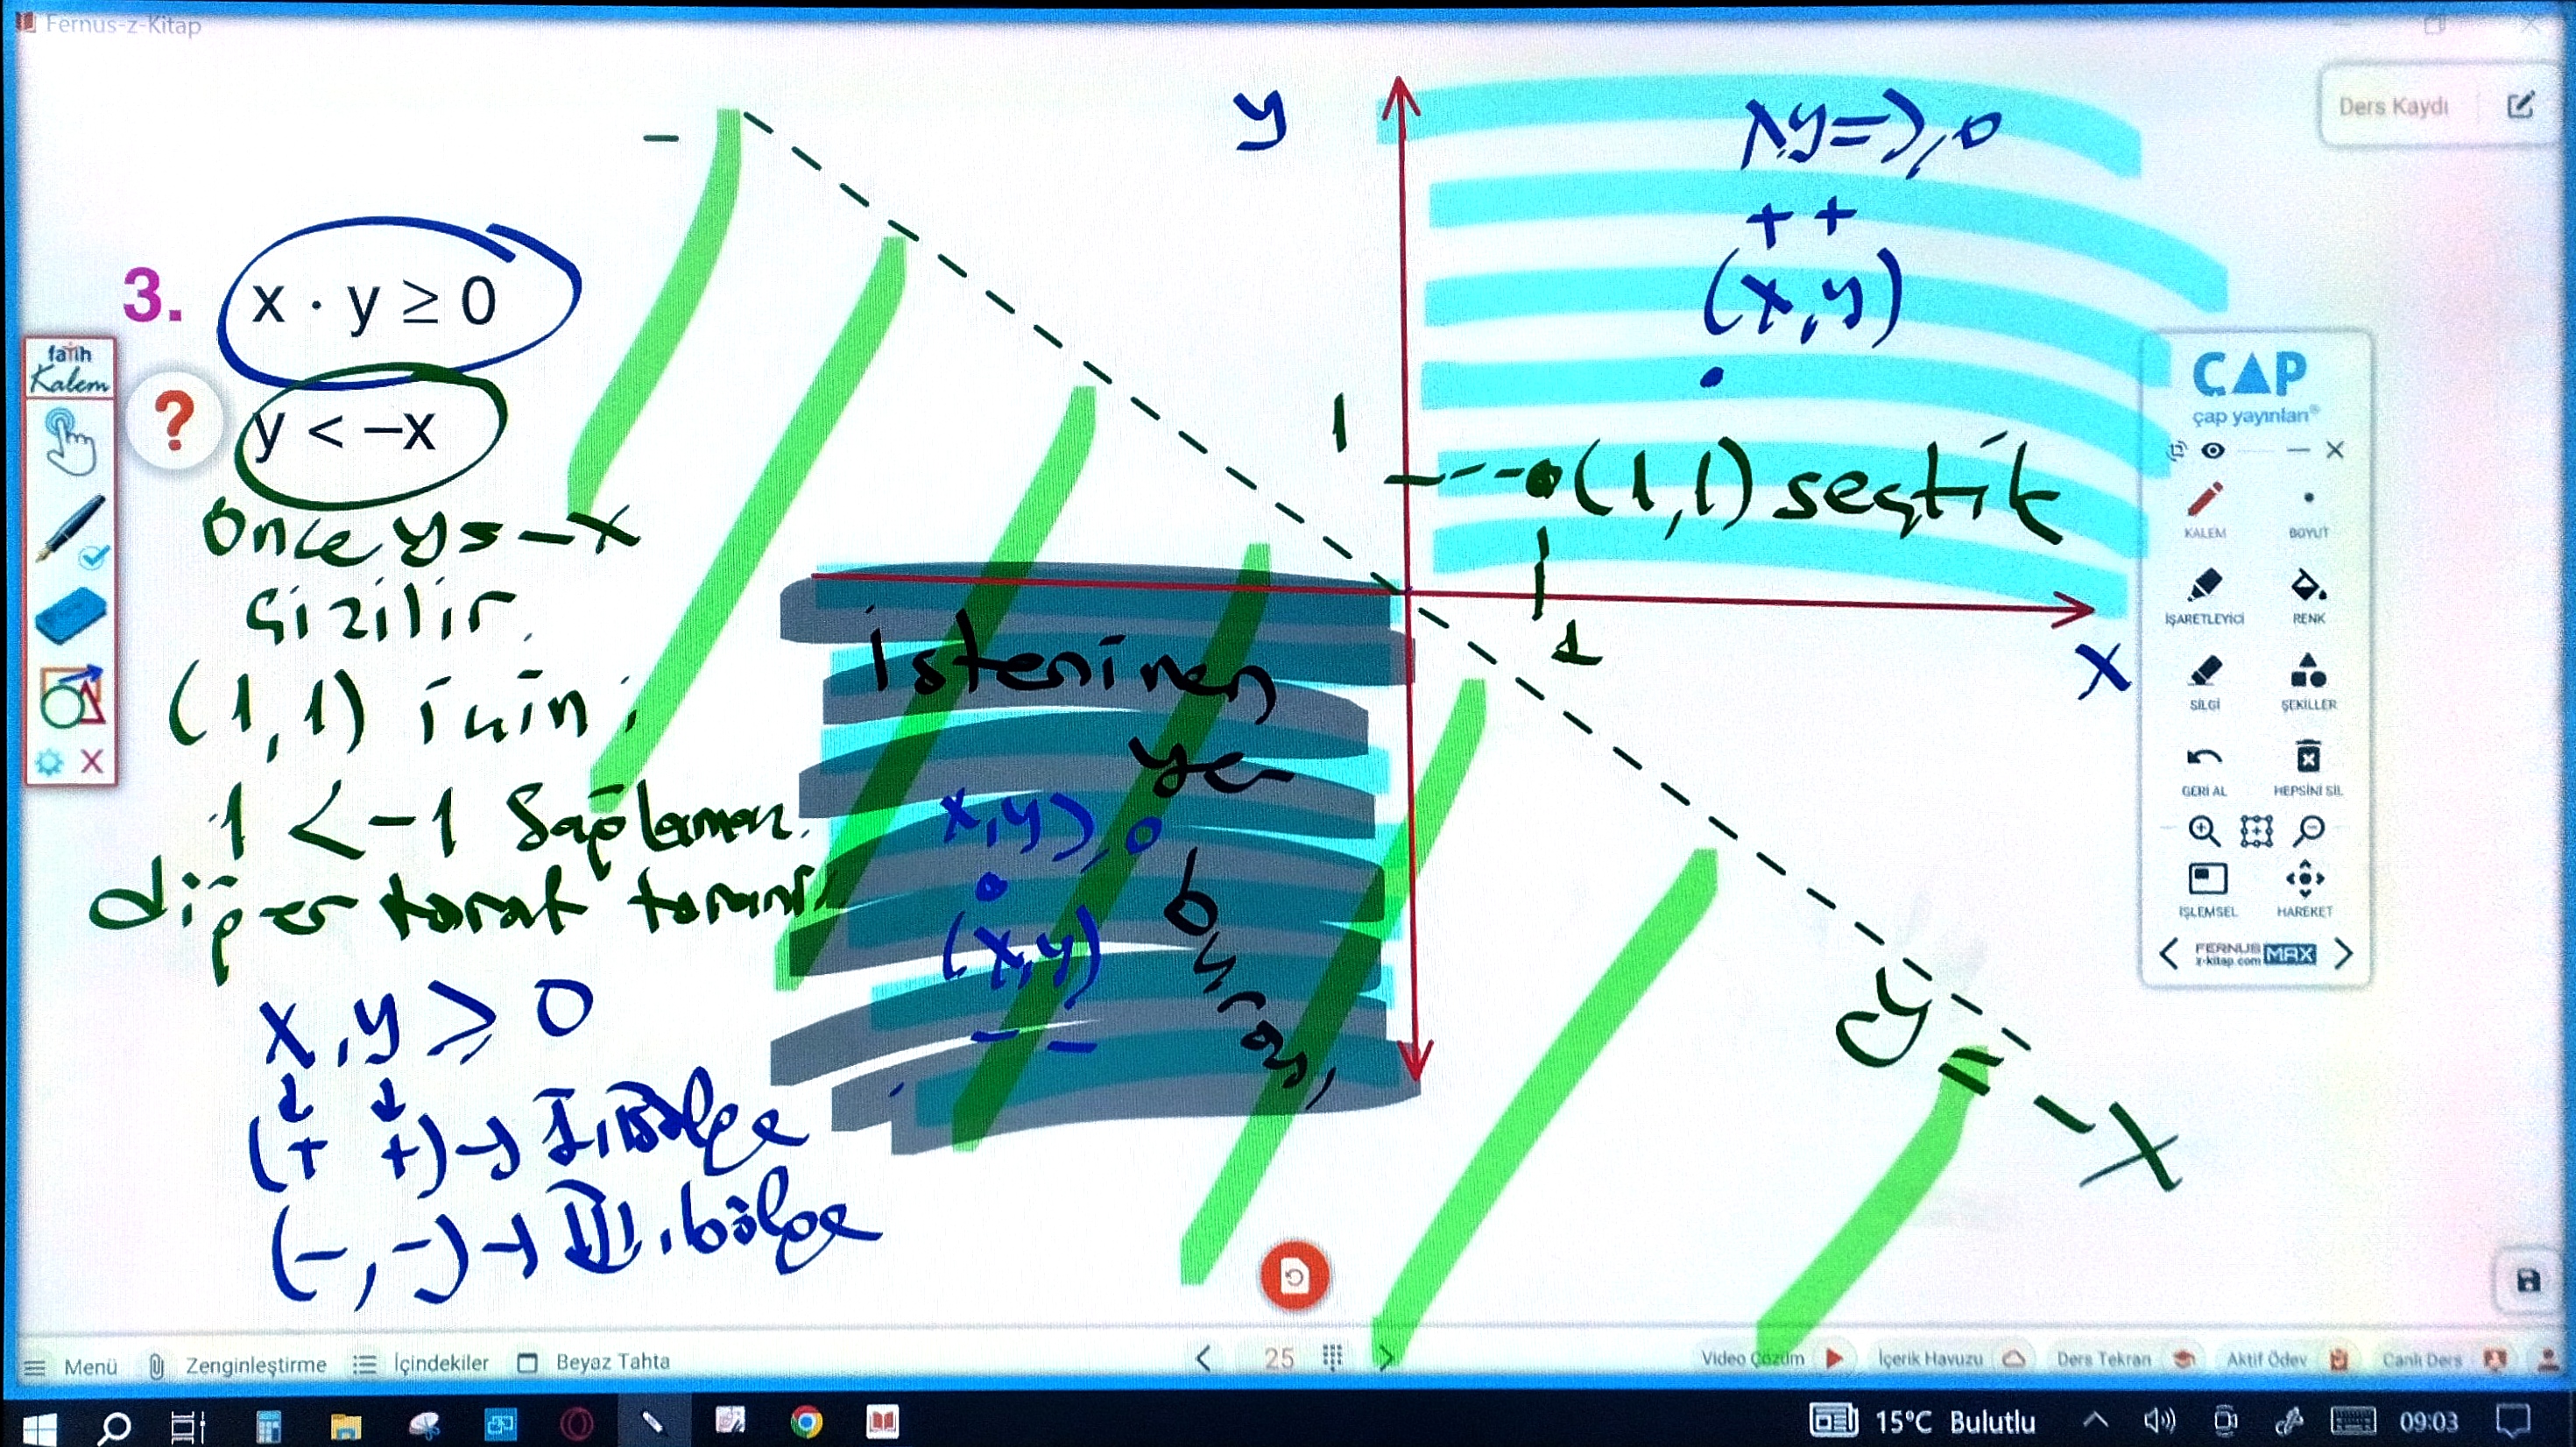 Fernus-z-Kitap
Ders Kaydı
y
3. x · y ≥ 0
y < −x
Önce y = −x
çizilir.
(1,1) için;
1 < −1 Sağlamaz.
diğer taraf taranır
x.y ≥ 0
(+ +) → I. Bölge
(−, −) → III. bölge
x.y ⩾ 0
+ +
(x,y)
1
(1,1) seçtik
1
x
isteninen
yer
x.y ⩾ 0
(x,y)
− −
burası
y = −x
fatih
Kalem
?
ÇAP
çap yayınları®
KALEM BOYUT
İŞARETLEYİCİ RENK
SİLGİ ŞEKİLLER
GERİ AL HEPSİNİ SİL
İŞLEMSEL HAREKET
FERNUS
z-kitap.com MAX
Menü Zenginleştirme İçindekiler Beyaz Tahta 25 Video Çözüm İçerik Havuzu Ders Tekran Aktif Ödev Canlı Ders
15°C Bulutlu 09:03